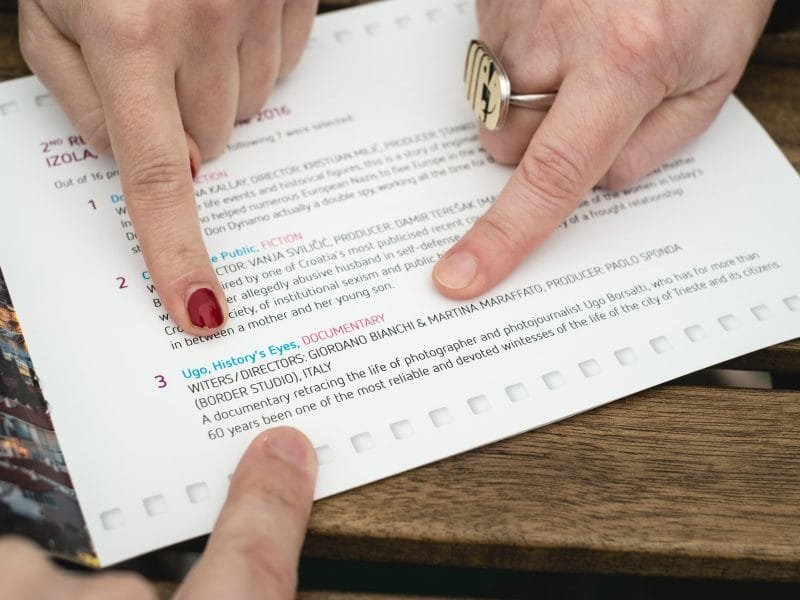 2ND 2016
IZOLA,
Out of 16 following 7 were selected:
1
KALLAY, DIRECTOR: KRISTIJAN MILIĆ, PRODUCER:
life events and historical figures, this is a story of
helped numerous European Nazis to flee Europe in the
Don Dynamo actually a double spy, working all the time for
2 Public, FICTION
VANJA SVILIČIĆ, PRODUCER: DAMIR TEREŠAK
by one of Croatia's most publicised recent of the women in today's
allegedly abusive husband in self-defense of a frought relationship
society, of institutional sexism and public
in between a mother and her young son.
3 Ugo, History's Eyes, DOCUMENTARY
WITERS/DIRECTORS: GIORDANO BIANCHI & MARTINA MARAFFATO, PRODUCER: PAOLO SPONDA
(BORDER STUDIO), ITALY
A documentary retracing the life of photographer and photojournalist Ugo Borsatti, who has for more than
60 years been one of the most reliable and devoted wintesses of the life of the city of Trieste and its citizens.